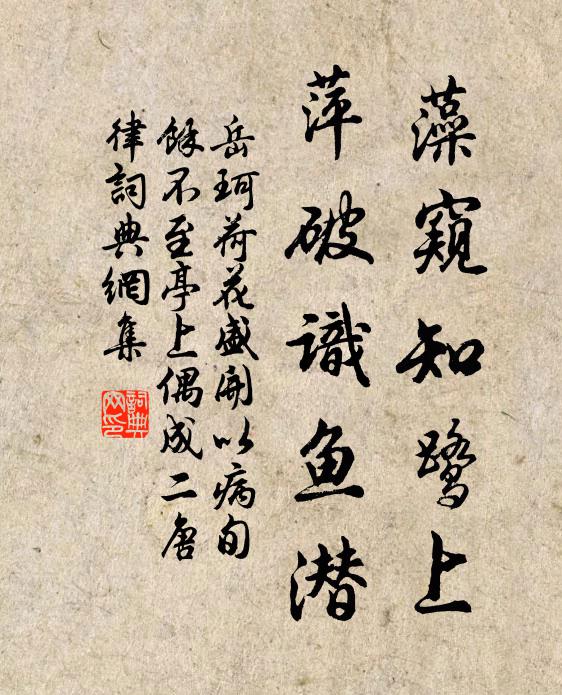 藻窺知鷺上
萍破識魚潛
岳珂荷花盛開以病旬
餘不至亭上偶成二唐
律詞典網集
詞典
網印